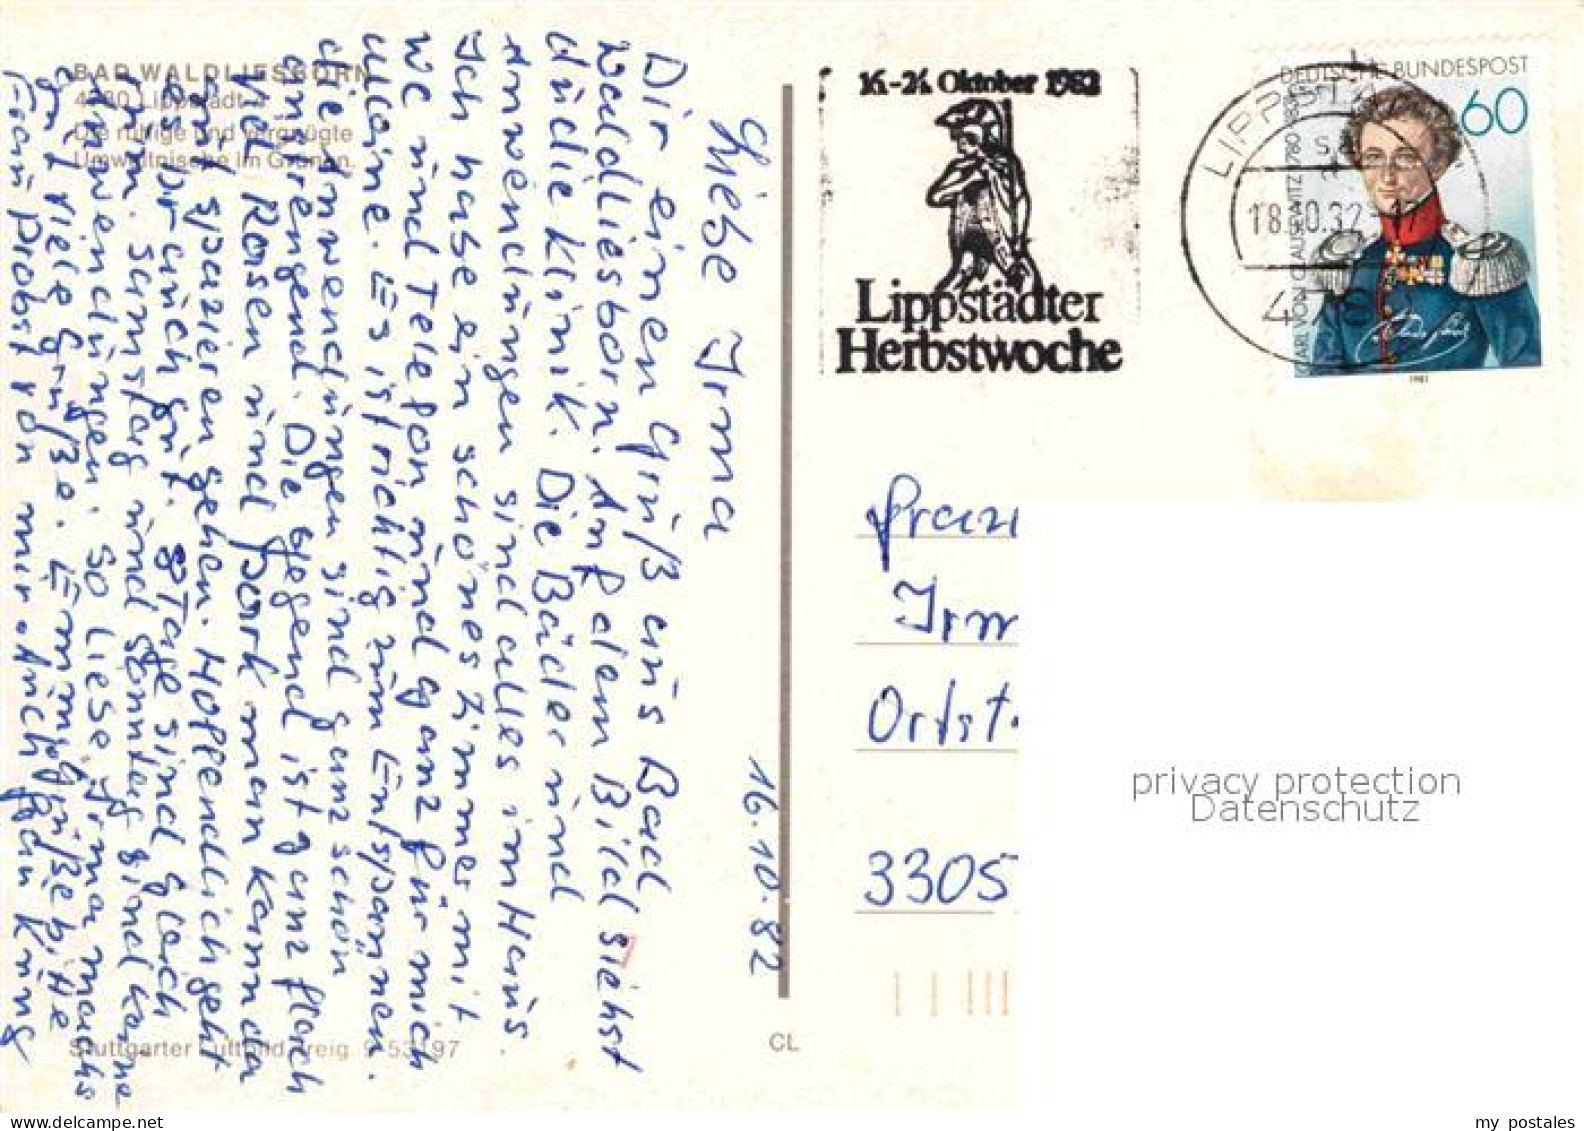 BAD WALDLIESBORN
4780 Lippstadt 4
Die ruhige und vergnügte
Umweltnische im Grünen.
16.10.82
Liebe Irma
Dir einen Gruß aus Bad
Waldliesborn. Auf dem Bild siehst
du die Klinik. Die Bäder und
Anwendungen sind alles im Haus.
Ich habe ein schönes Zimmer mit
WC und Telefon und ganz für mich
alleine. Es ist richtig zum Entspannen.
die Anwendungen sind ganz schön
anstrengend. Die Gegend ist ganz flach
Viel Rosen und Park man kann da
spazieren gehen. Hoffendlich geht
es Dir auch gut. 8 Tage sind gleich
rum. Samstag und Sonntag sind keine
Anwendungen. So liebe Irma machs
gut viele Grüße. Emmi, Grüße bitte
Frau Probst von mir. Auch Frau
Stuttgarter Luftbild
CL
16.-24. Oktober 1982
Lippstädter
Herbstwoche
LIPPSTADT
18.10.82
478
DEUTSCHE BUNDESPOST
60
CARL VON CLAUSEWITZ 1780-1831
1981
Frau
Irm
Ortst.
3305
privacy protection
Datenschutz
my postales